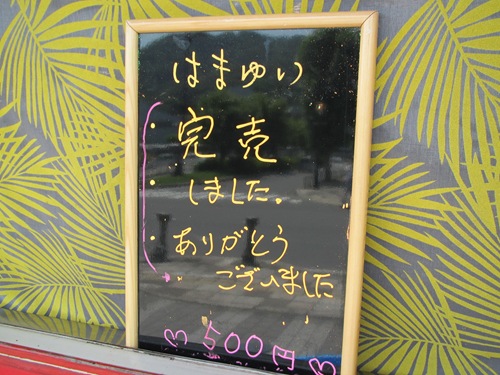 はまゆい
・完売
・しました。
・ありがとう
ございました
♡500円♡